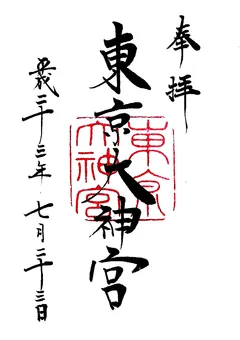 奉拝
東京大神宮
東京大神宮
平成二十三年七月二十三日